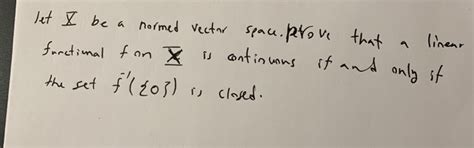 let X be a normed vector space. prove that a linear
functional f on X is continuous if and only if
the set f⁻¹({0}) is closed.